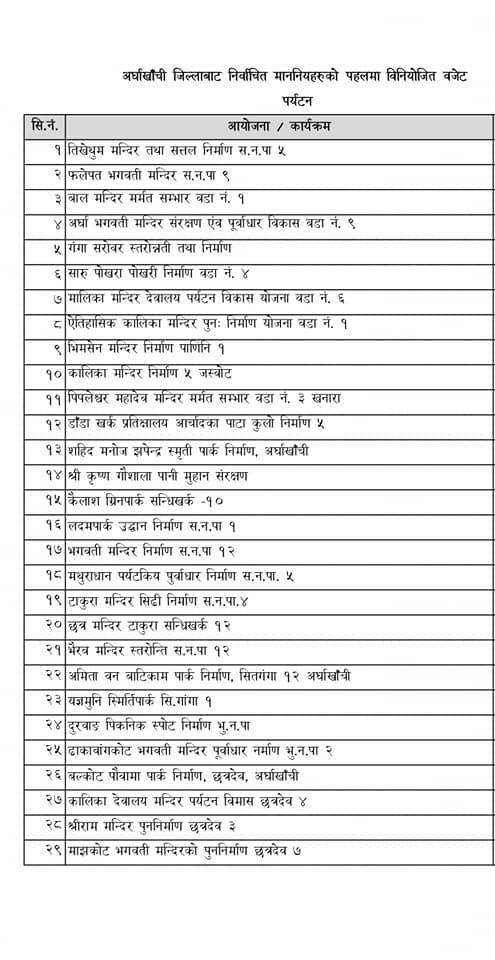 अर्घाखाँची जिल्लाबाट निर्वाचित माननियहरुको पहलमा विनियोजित वजेट
पर्यटन
सि.नं. आयोजना / कार्यक्रम
१ तिखेथुम मन्दिर तथा सत्तल निर्माण स.न.पा ५
२ फलेपत भगवती मन्दिर स.न.पा ९
३ बाल मन्दिर मर्मत सम्भार वडा नं. १
४ अर्घा भगवती मन्दिर संरक्षण एंव पूर्वाधार विकास वडा नं. ९
५ गंगा सरोवर स्तरोन्नती तथा निर्माण
६ सारु पोखरा पोखरी निर्माण वडा नं. ४
७ मालिका मन्दिर देवालय पर्यटन विकास योजना वडा नं. ६
८ ऐतिहासिक कालिका मन्दिर पुनः निर्माण योजना वडा नं. १
९ भिमसेन मन्दिर निर्माण पाणिनि १
१० कालिका मन्दिर निर्माण ५ जस्वोट
११ पिपलेश्वर महादेव मन्दिर मर्मत सम्भार वडा नं. ३ खनारा
१२ डाँडा खर्क प्रतिक्षालय आर्चादका पाटा कुलो निर्माण ५
१३ शहिद मनोज झपेन्द्र स्मृती पार्क निर्माण, अर्घाखाँची
१४ श्री कृष्ण गौशाला पानी मुहान संरक्षण
१५ कैलाश ग्रिनपार्क सन्धिखर्क -१०
१६ लदमपार्क उद्दान निर्माण स.न.पा १
१७ भगवती मन्दिर निर्माण स.न.पा १२
१८ मथुराधान पर्यटकिय पुर्वाधार निर्माण स.न.पा. ५
१९ टाकुरा मन्दिर सिढी निर्माण स.न.पा.४
२० छत्र मन्दिर टाकुरा सन्धिखर्क १२
२१ भैरव मन्दिर स्तरोन्ति स.न.पा १२
२२ अमिता वन बाटिकाम पार्क निर्माण, सितगंगा १२ अर्घाखाँची
२३ यज्ञमुनि स्मिर्तिपार्क सि.गांगा १
२४ दुरवाङ पिकनिक स्पोट निर्माण भु.न.पा
२५ ढाकावांगकोट भगवती मन्दिर पूर्वाधार नर्माण भु.न.पा २
२६ बल्कोट पौवामा पार्क निर्माण, छत्रदेव, अर्घाखाँची
२७ कालिका देवालय मन्दिर पर्यटन विमास छत्रदेव ४
२८ श्रीराम मन्दिर पुननिर्माण छत्रदेव ३
२९ माझकोट भगवती मन्दिरको पुननिर्माण छत्रदेव ७